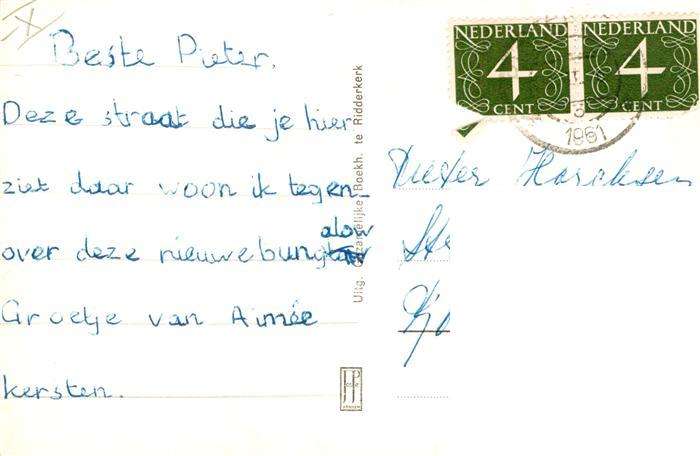 Beste Pieter,
Deze straat die je hier
ziet daar woon ik tegen-
over deze nieuwe bungalow
Groetje van Aimée
kersten.
Uitg. Gezamelijke Boekh. te Ridderkerk
NEDERLAND NEDERLAND
4 4
CENT CENT
1961
Pieter